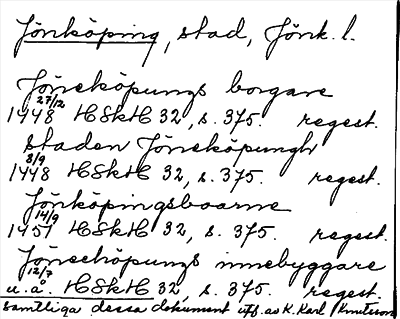 Jönköping, stad, Jönk. l.
Jöneköpungs borgare
1448 27/12 HSkH 32, s. 375. regest.
staden Jöneköpungh
1448 8/9 HSkH 32, s. 375. regest.
Jönköpingsboarne
1451 14/9 HSkH 32, s. 375. regest.
Jönecköpungs innebyggare
u.å. 12/7 HSkH 32, s. 375. regest.
samtliga dessa dokument utf. av K. Karl Knutsson